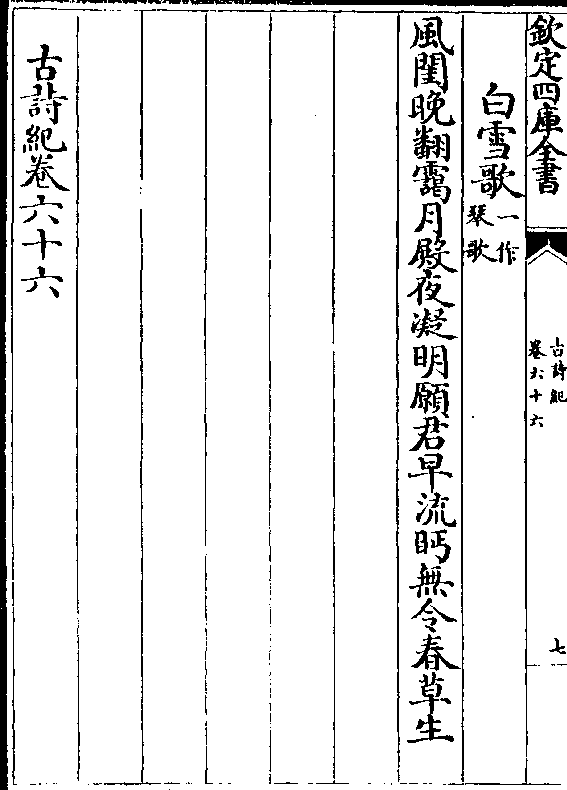 欽定四庫全書
古詩紀
卷六十六
七
白雪歌一作
琴歌
風閨晚翻靄月殿夜凝明願君早流眄無令春草生
古詩紀卷六十六